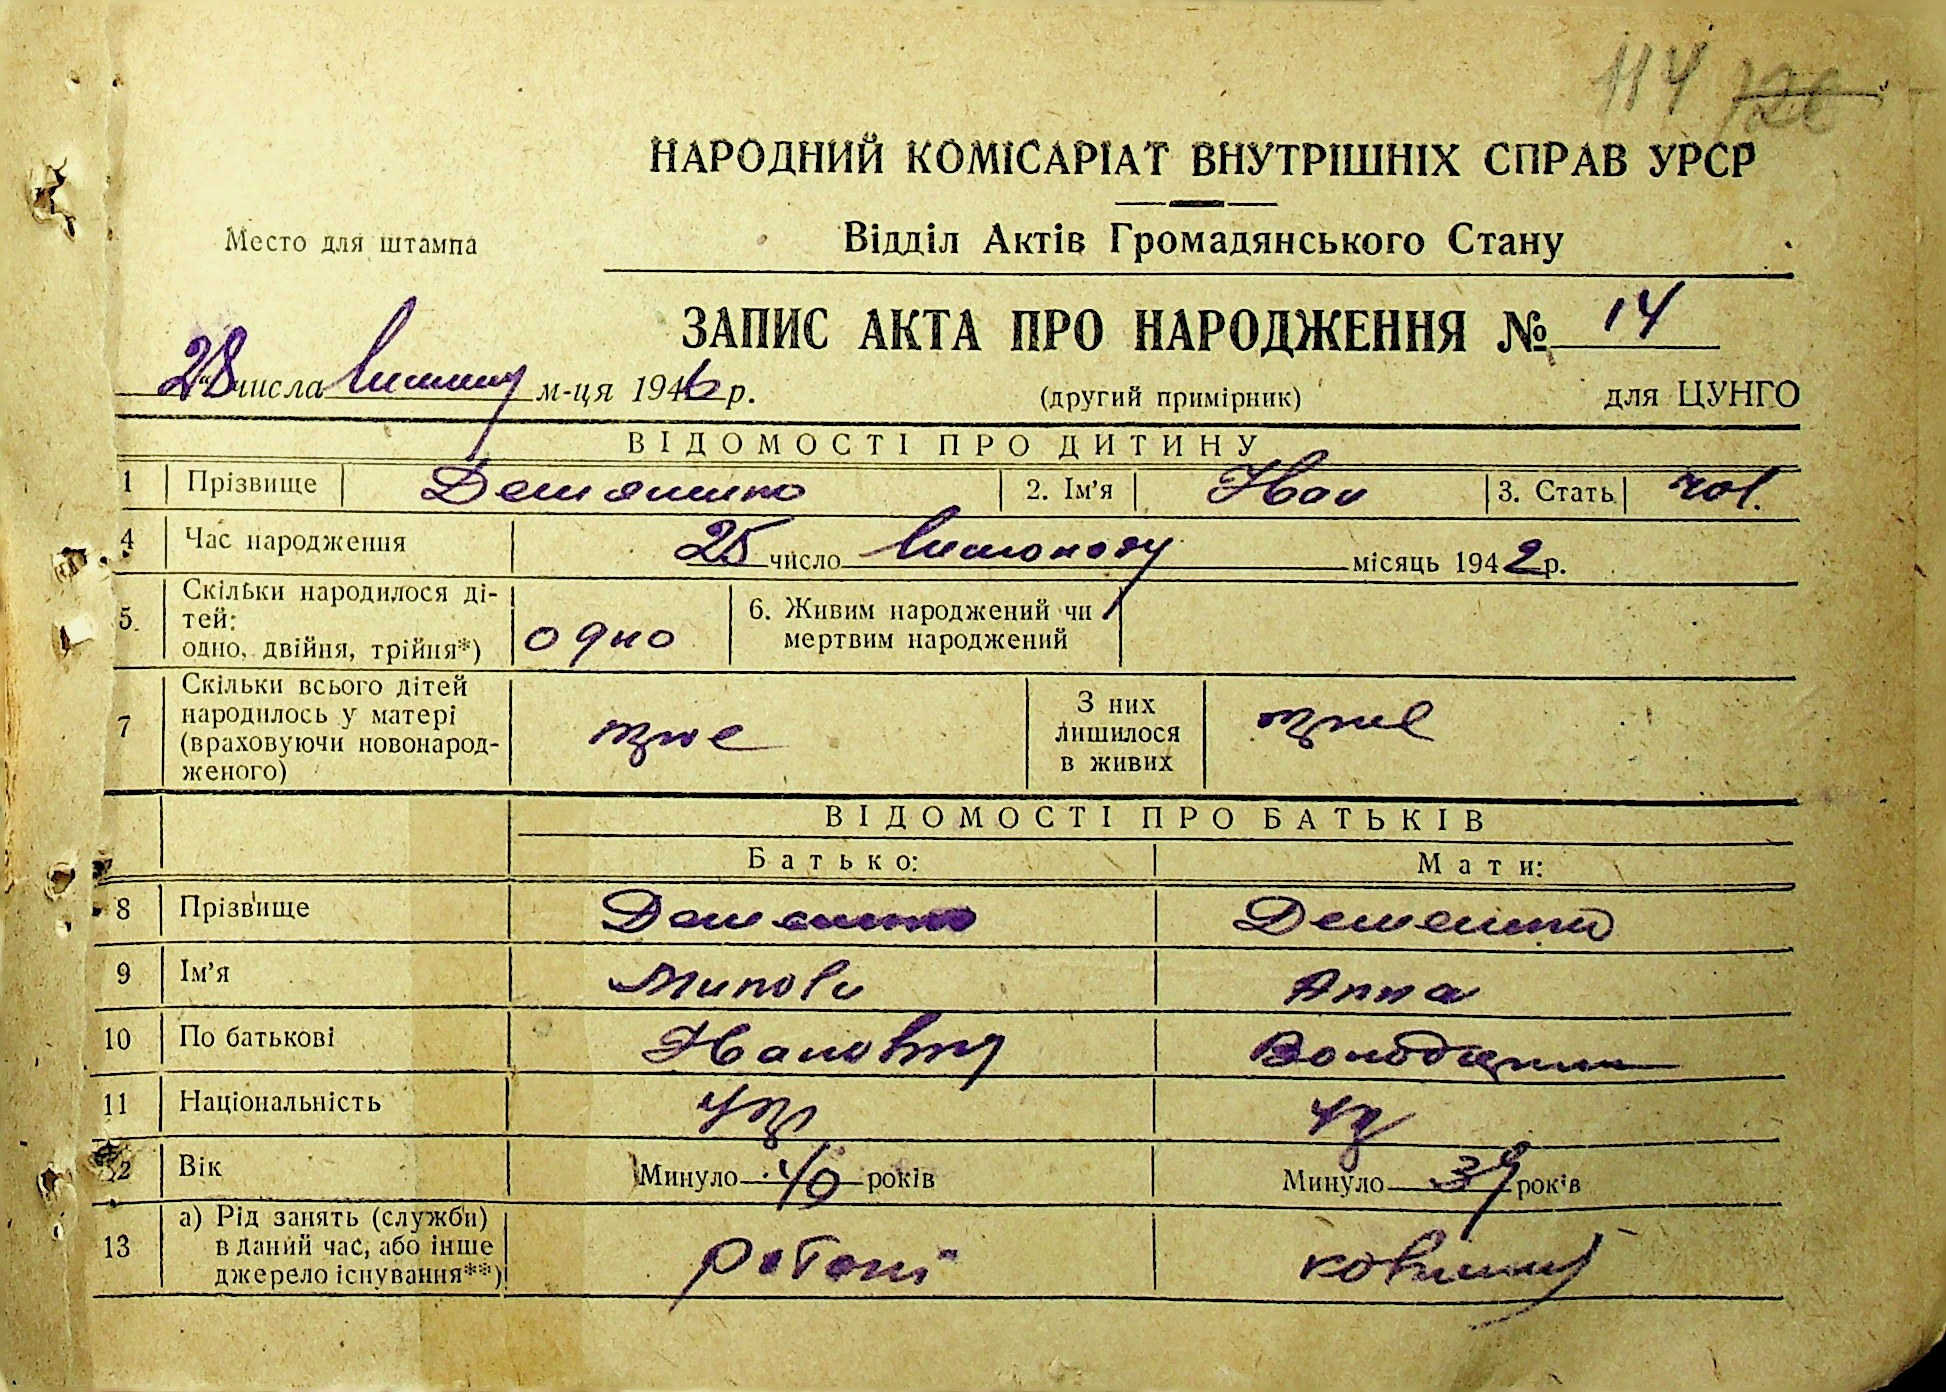 114 126
НАРОДНИЙ КОМІСАРІАТ ВНУТРІШНІХ СПРАВ УРСР
Место для штампа
Відділ Актів Громадянського Стану
ЗАПИС АКТА ПРО НАРОДЖЕННЯ № 14
28 числа м-ця 1946 р.
(другий примірник)
для ЦУНГО
ВІДОМОСТІ ПРО ДИТИНУ
1 Прізвище 2. Ім'я Іван 3. Стать чол.
4 Час народження 25 число Листопаду місяць 1942 р.
5. Скільки народилося ді-
тей:
одно, двійня, трійня*) одно
6. Живим народжений чи
мертвим народжений
7 Скільки всього дітей
народилось у матері
(враховуючи новонарод-
женого) троє
З них
лишилося
в живих троє
ВІДОМОСТІ ПРО БАТЬКІВ
Батько: Мати:
8 Прізвище
9 Ім'я Микола Анна
10 По батькові Іванович
11 Національність укр укр
12 Вік Минуло 40 років Минуло 39 років
13 а) Рід занять (служби)
в даний час, або інше
джерело існування**)